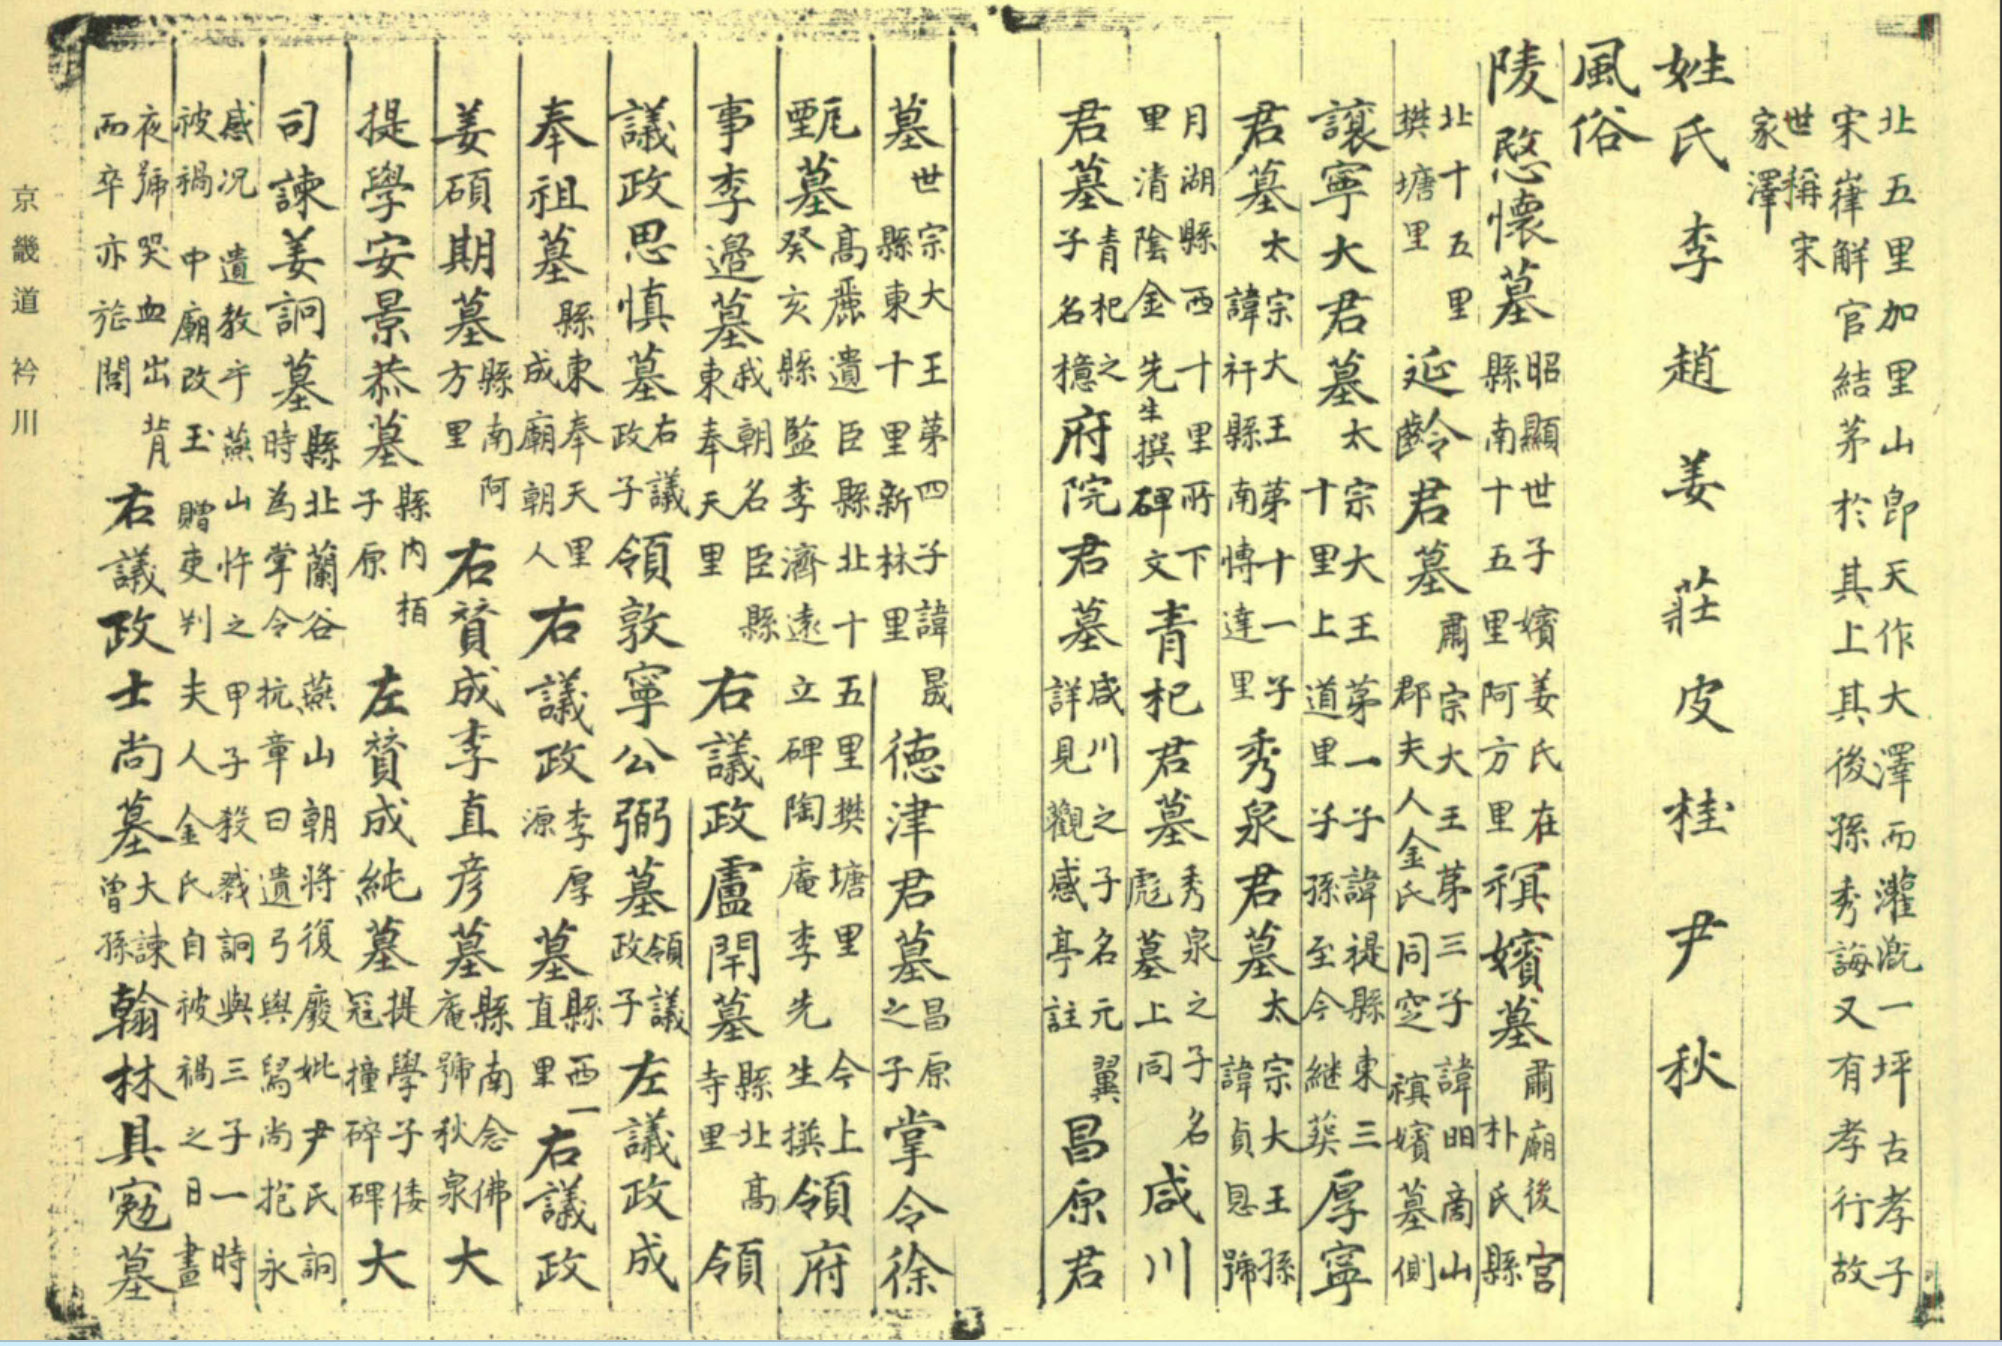 北五里加里山卽天作大澤而灌漑一坪古孝子
宋嵂解官結茅於其上其後孫秀誨又有孝行故
世稱宋
家澤
姓氏 李 趙 姜 莊 皮 桂 尹 秋
風俗
陵愍懷墓 昭顯世子嬪姜氏在 縣南十五里阿方里 禛嬪墓 肅廟後宮 朴氏縣
北十五里 樊塘里 延齡君墓 肅宗大王第三子諱昍啇山 郡夫人金氏同窆禛嬪墓側
讓寧大君墓 太宗大王第一子諱禔縣東三 十里上道里子孫至今継葬 厚寧
君墓 太宗大王第十一子 諱衦縣南博達里 秀泉君墓 太宗大王孫 諱貞恩號
月湖縣西十里所下 里清陰金先生撰碑文 青杞君墓 秀泉之子名 彪墓上同 咸川
君墓 青杞之 子名檍 府院君墓 咸川之子名元翼 詳見觀感亭註 昌原君
墓 世宗大王第四子諱晟 縣東十里新林里 德津君墓 昌原 之子 掌令徐
甄墓 高麗遺臣縣北十五里樊塘里今上 癸亥縣監李濟遠立碑陶庵李先生撰 領府
事李邉墓 我朝名臣縣 東奉天里 右議政盧閈墓 縣北高 寺里 領
議政思慎墓 右議 政子 領敦寧公弼墓 領議 政子 左議政成
奉祖墓 縣東奉天里 成廟朝人 右議政 李厚 源 墓 縣西一 直里 右議政
姜碩期墓 縣南阿 方里 右贊成李直彦墓 縣南念佛 庵號秋泉 大
提學安景恭墓 縣內栢 子原 左贊成純墓 提學子倭 冦撞碎碑 大
司諫姜詗墓 縣北蘭谷燕山朝將復廢妣尹氏詗 時為掌令抗章曰遺弓與舃尚抱永
感况遺教乎燕山忤之甲子殺戮詗與三子一時 被禍中廟改玉贈吏判夫人金氏自被禍之日晝
夜號哭血出背 而卒亦㫌閭 右議政士尚墓 大諫 曾孫 翰林具寃墓
京畿道 衿川